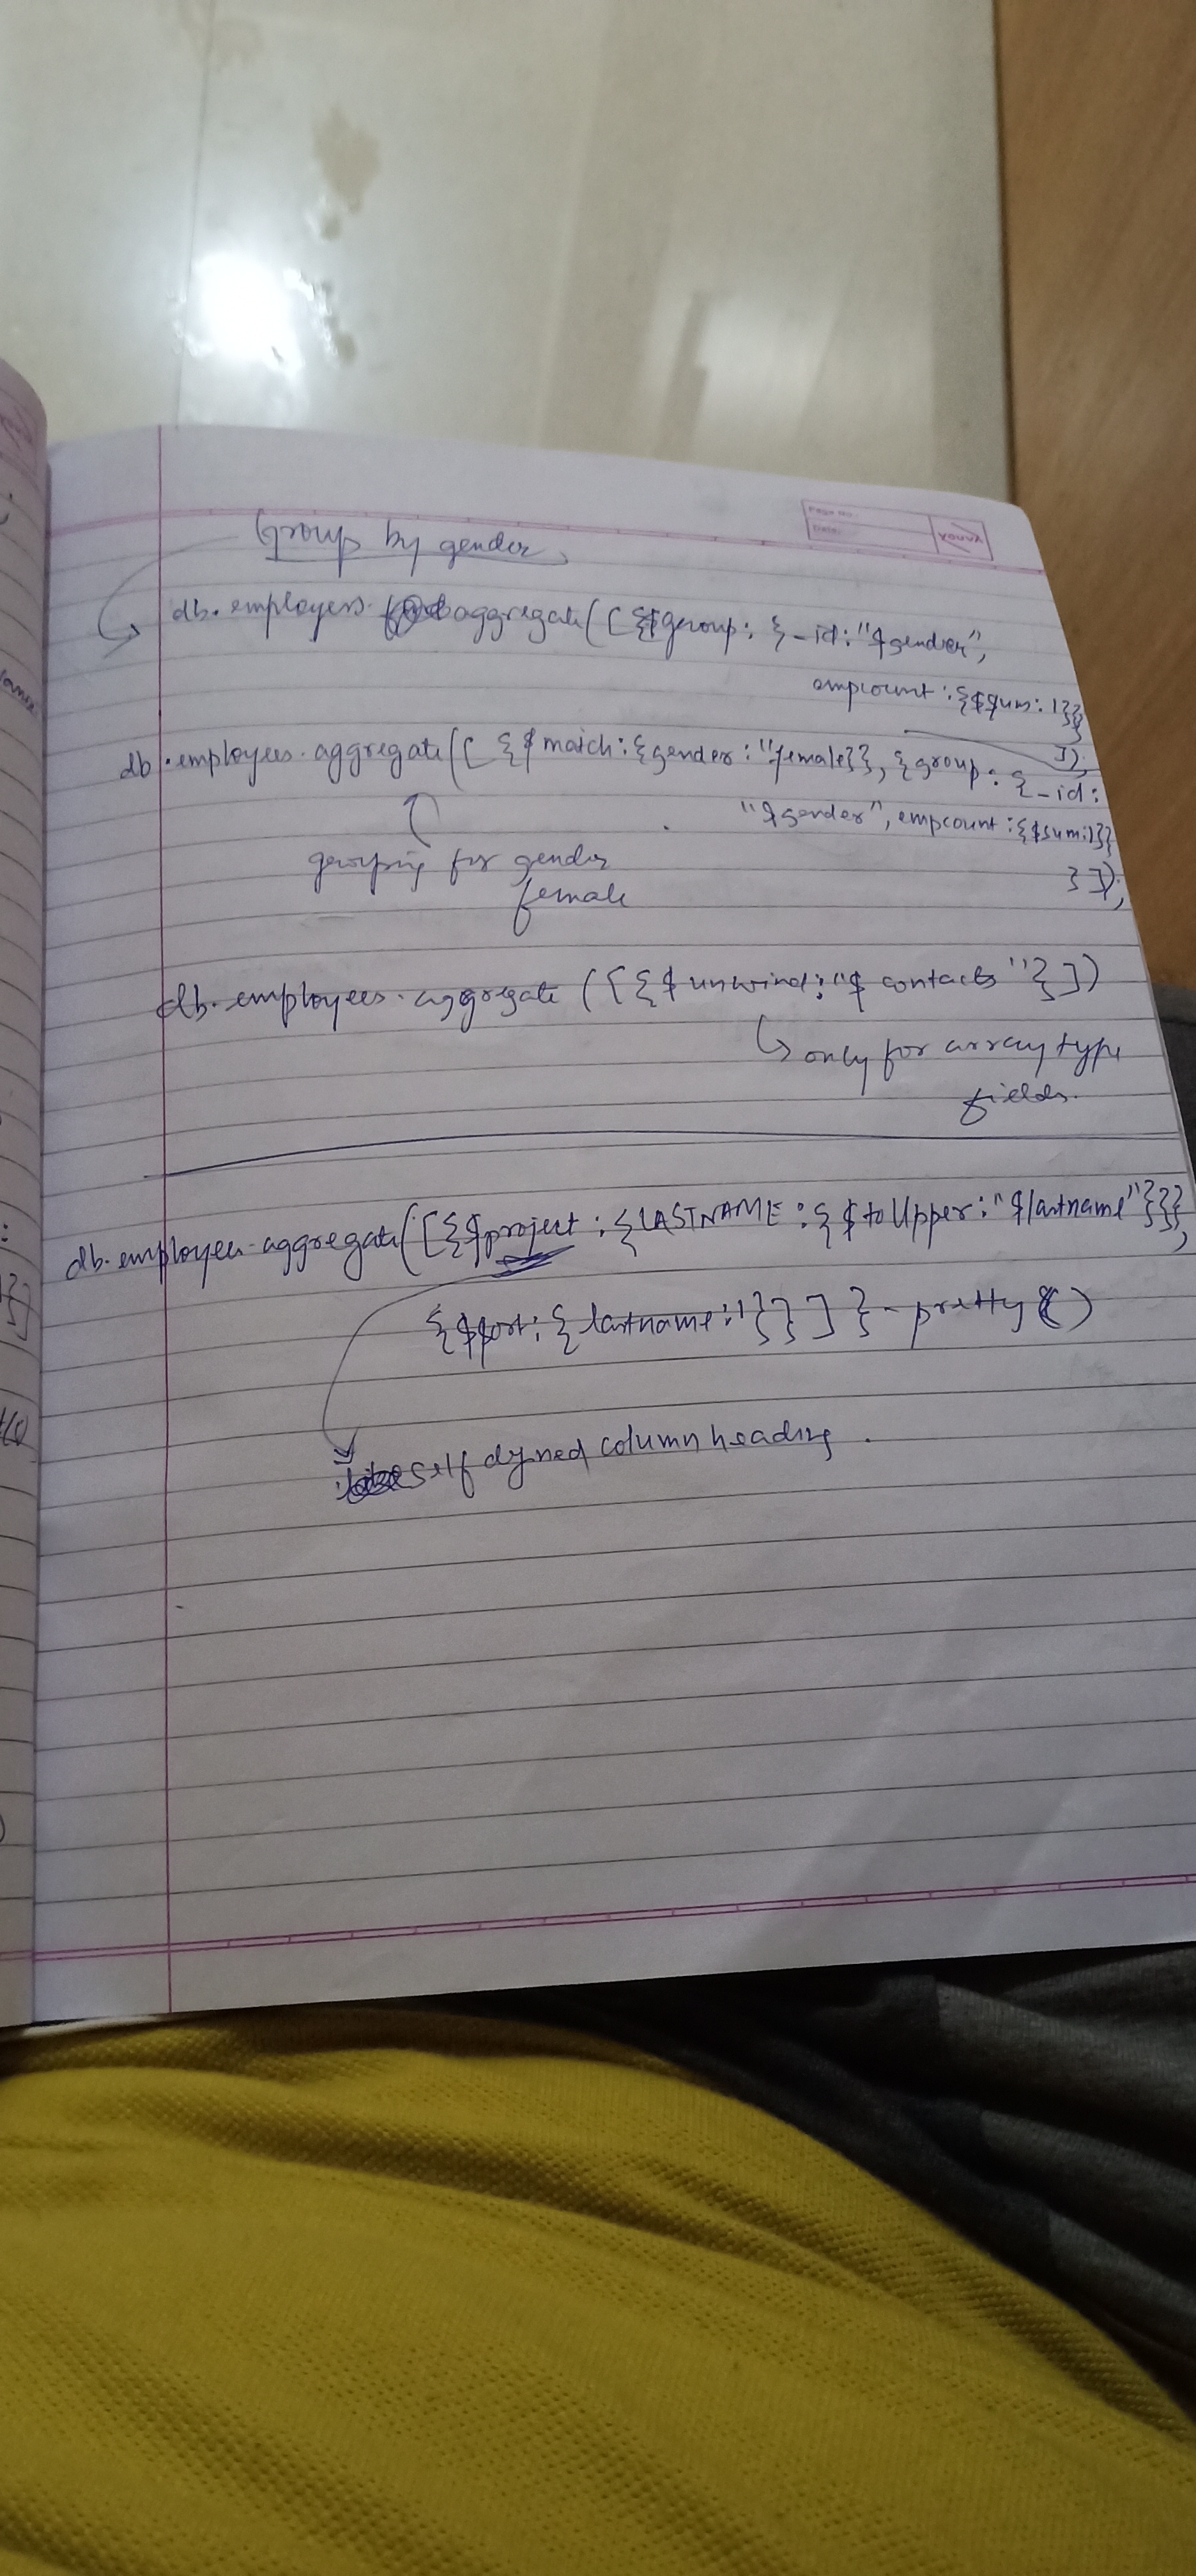 Page No.
Date:
YOUVA
Group by gender
db.employees. aggregate([{$group: {_id:"$gender",
empcount:{$sum:1}}
}
]);
db.employees.aggregate([{$match:{gender:"female}}, {group: {_id:
"$gender", empcount:{$sum:1}}
}]);
grouping for gender
female
db.employees.aggregate([{$unwind:"$contacts"}])
↳ only for array type
fields.
db.employees.aggregate([{$project:{LASTNAME:{$toUpper:"$lastname"}}},
{$sort:{lastname:1}}]}.pretty()
self column heading.